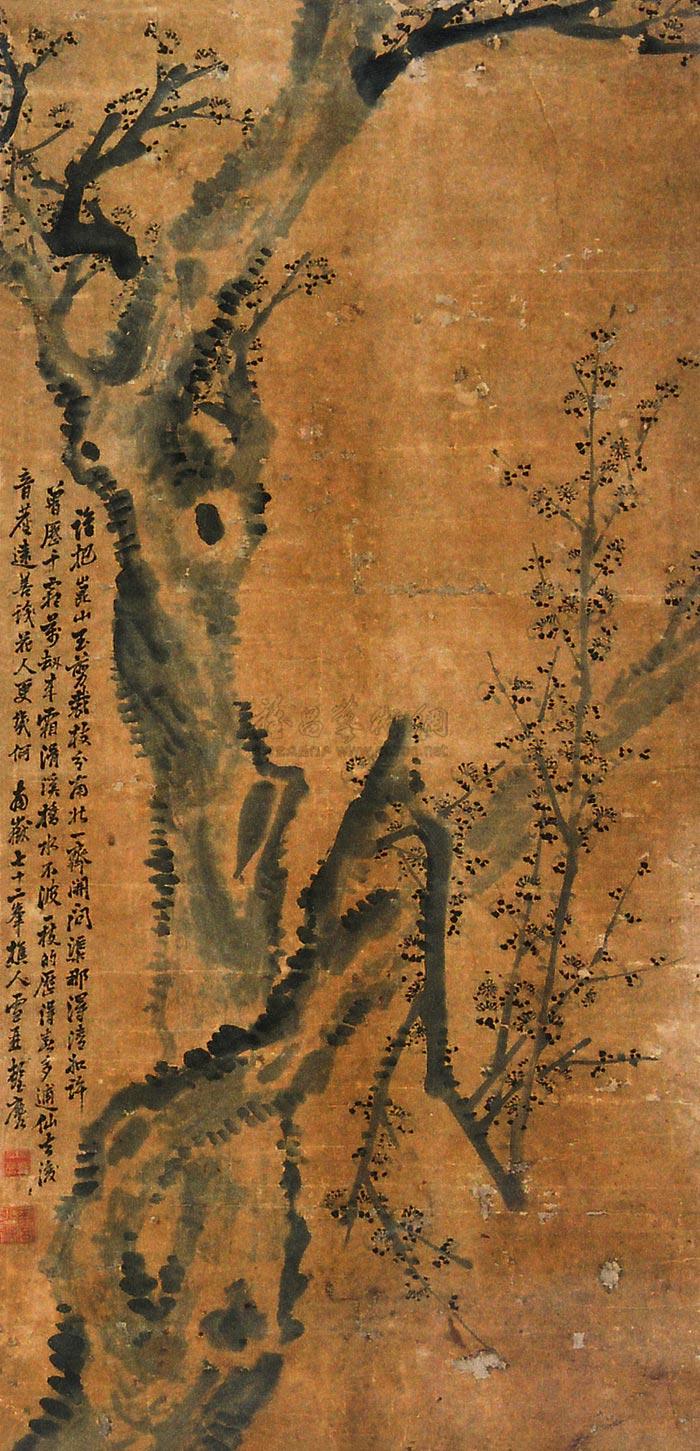 誰把崑山玉剪裁枝分南北一齊開問渠那得清如許
曾歷千霜萬劫來霜滑溪橋水不波一枝的歷得春多逋仙去後
音塵遠善識花人更幾何 南嶽七十二峯樵人雪